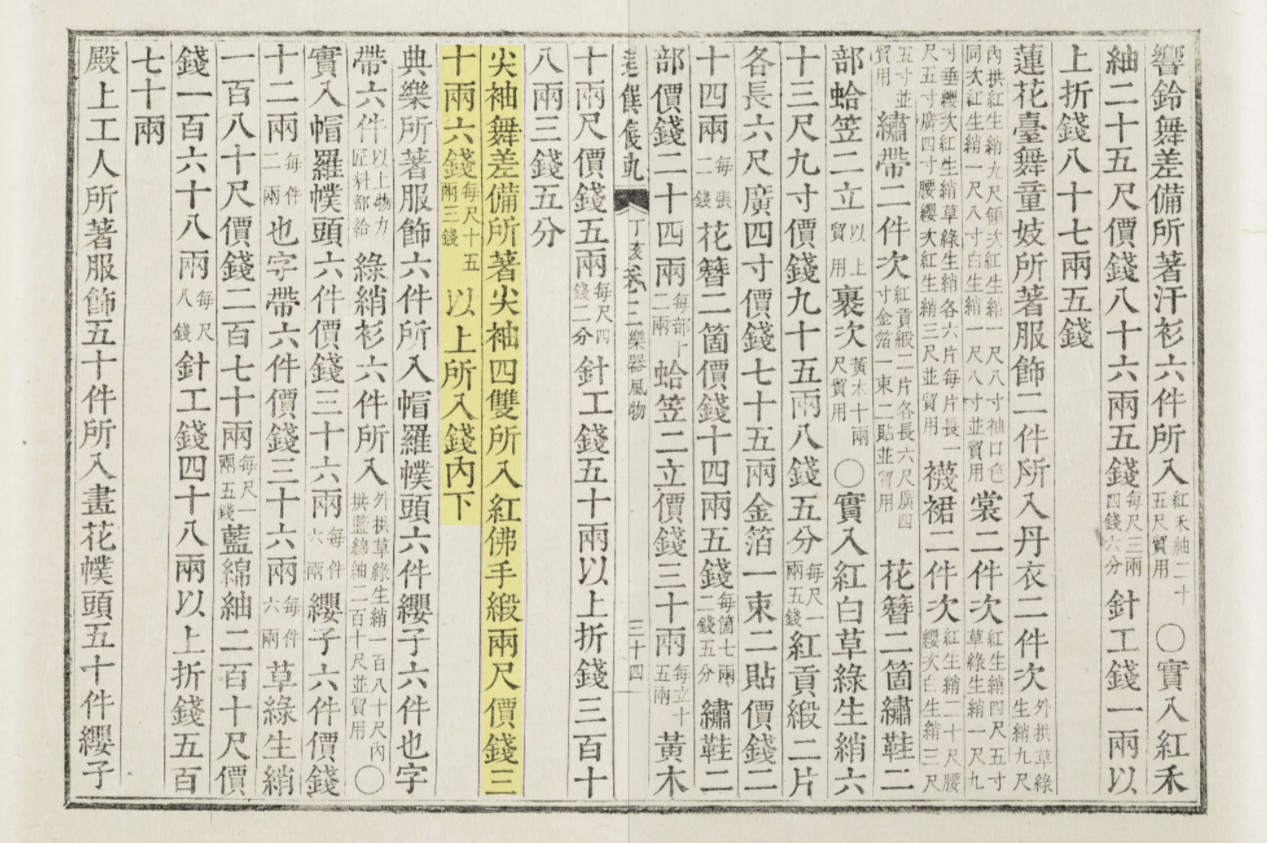 響鈴舞差備所著汗衫六件所入紅禾紬二十五尺貿用○實入紅禾
紬二十五尺價錢八十六兩五錢每尺三兩四錢六分針工錢一兩以
上折錢八十七兩五錢
蓮花臺舞童妓所著服飾二件所入丹衣二件次外拱草綠生綃九尺
內拱紅生綃九尺領次紅生綃一尺八寸袖口色同次紅生綃一尺八寸白生綃一尺八寸並貿用裳二件次紅生綃四尺五寸草綠生綃一尺九
寸垂纓次紅生綃草綠生綃各六片每片長一尺五寸廣四寸腰纓次紅生綃三尺並貿用襪裙二件次紅生綃二十尺腰纓次白生綃三尺
五寸並貿用繡帶二件次紅貢緞二片各長六尺廣四寸金箔一束二貼並貿用花簪二箇繡鞋二
部蛤笠二立以上貿用裹次黃木十兩尺貿用○實入紅白草綠生綃六
十三尺九寸價錢九十五兩八錢五分每尺一兩五錢紅貢緞二片
各長六尺廣四寸價錢七十五兩金箔一束二貼價錢二
十四兩每張二錢花簪二箇價錢十四兩五錢每箇七兩二錢五分繡鞋二
部價錢二十四兩每部十二兩蛤笠二立價錢三十兩每立十五兩黃木
進饌儀軌 丁亥 卷二 樂器風物 三十四
十兩尺價錢五兩每尺四錢二分針工錢五十兩以上折錢三百十
八兩三錢五分
尖袖舞差備所著尖袖四雙所入紅佛手緞兩尺價錢三
十兩六錢每尺十五兩三錢以上所入錢內下
典樂所著服飾六件所入帽羅幞頭六件纓子六件也字
帶六件以上物力匠料都給綠綃衫六件所入外拱草綠生綃一百八十尺內拱藍綿紬二百十尺並貿用○
實入帽羅幞頭六件價錢三十六兩每件六兩纓子六件價錢
十二兩每件二兩也字帶六件價錢三十六兩每件六兩草綠生綃
一百八十尺價錢二百七十兩每尺一兩五錢藍綿紬二百十尺價
錢一百六十八兩每尺八錢針工錢四十八兩以上折錢五百
七十兩
殿上工人所著服飾五十件所入畫花幞頭五十件纓子